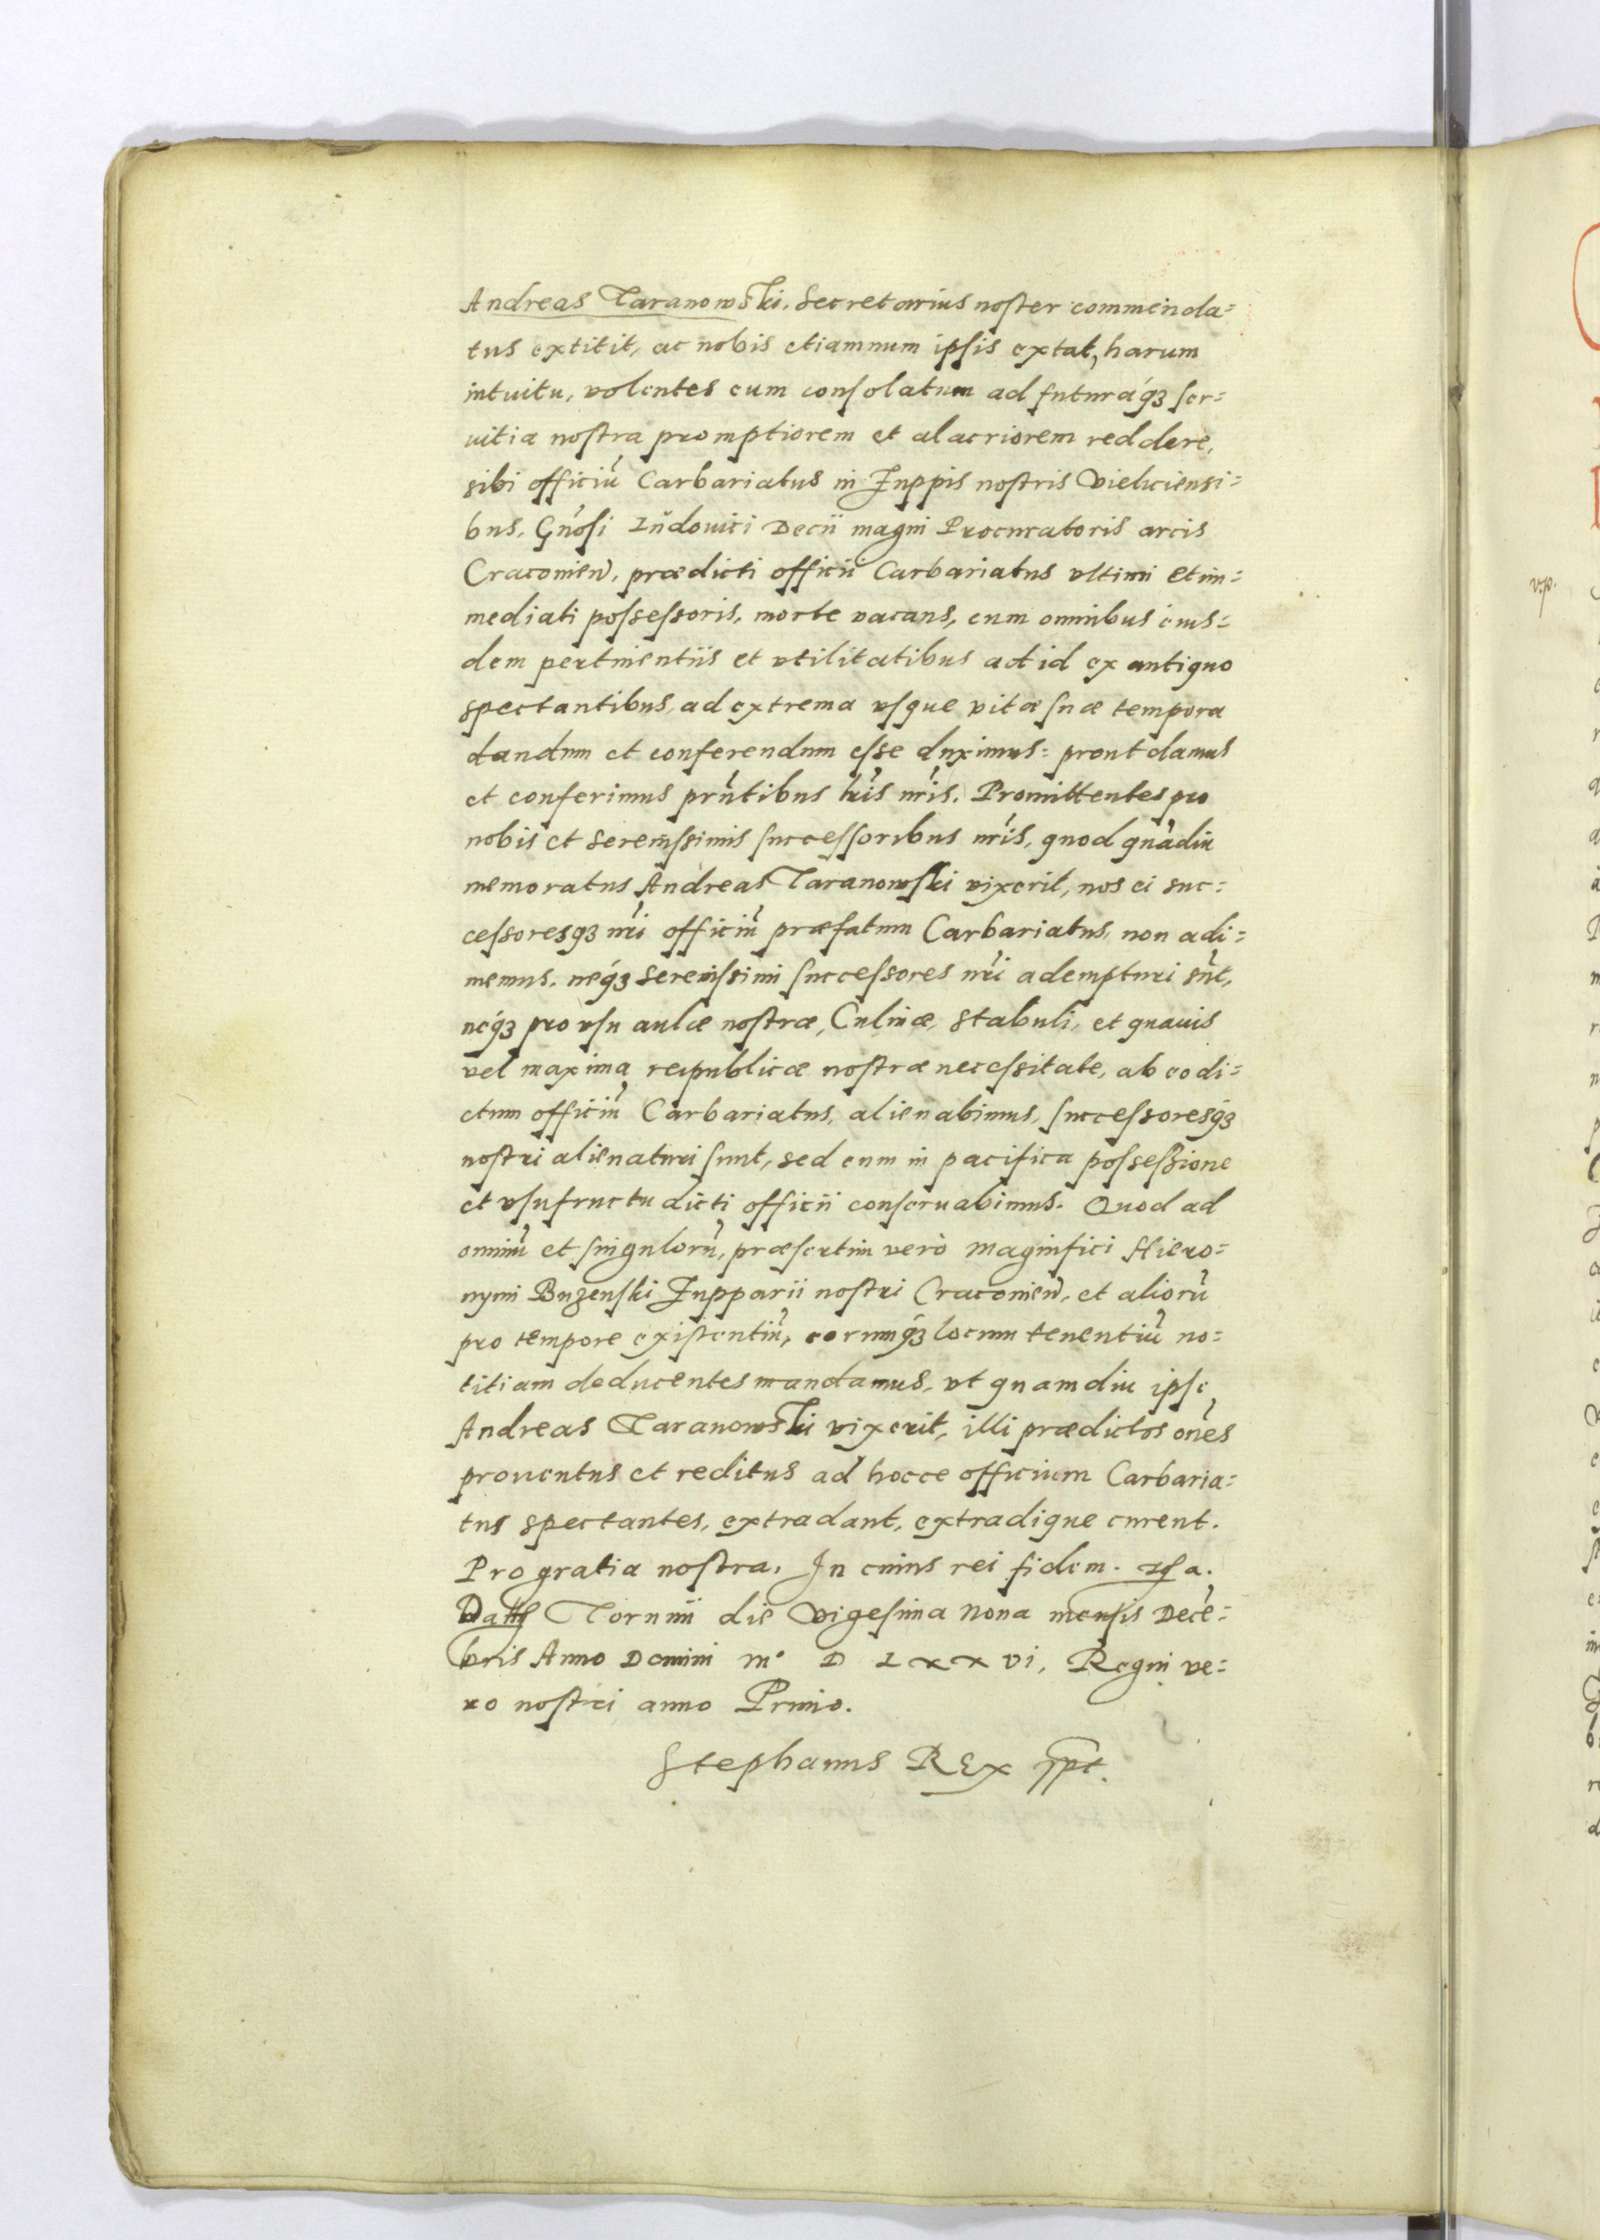 Andreas Taranowski, Secretarius noster commenda=
tus extitit, ac nobis etiamnum ipsis extat, harum
intuitu, volentes eum consolatum ad futuraq́ꝫ ser=
uitia nostra promptiorem et alacriorem reddere,
sibi officiū Carbariatus in Zuppis nostris Vieliciensi=
bus, Gn̄osi Ludouici Decii magni Procuratoris arcis
Cracouieñ, prædicti officii Carbariatus vltimi et im=
mediati possessoris, morte vacans, cum omnibus eius=
dem pertinentiis et vtilitatibus ad id ex antiquo
spectantibus, ad extrema vsque vitæ suæ tempora
dandum et conferendum esse duximus: prout damus
et conferimus prn̄tibus lr̄is nr̄is. Promittentes pro
nobis et serenissimis successoribus nr̄is, quod quādiu
memoratus Andreas Taranowski vixerit, nos ei suc=
cessoresqꝫ nr̄i officiū præfatum Carbariatus, non adi=
memus, neq́ꝫ serenissimi successores nr̄i adempturi sūt,
neq́ꝫ pro vsu aulæ nostræ, Culinæ, stabuli, et quauis
vel maxima reipublicæ nostræ necessitate, ab eo di=
ctum officiū Carbariatus, alienabimus, successoresq́ꝫ
nostri alienaturi sunt, sed eum in pacifica possessione
et vsufructu dicti officii conseruabimus. Quod ad
omniū et singulorū, præsertim verò Magnifici Hiero=
nymi Buzenski Zupparii nostri Cracouieñ, et aliorū
pro tempore existentiū, eorumq́ꝫ locum tenentiū no=
titiam deducentes mandamus, vt quamdiu ipse
Andreas Taranowski vixerit, illi prædictos oēs
prouentus et reditus ad hocce officium Carbaria=
tus spectantes, extradant, extradique curent.
Pro gratia nostra. In cuius rei fidem.
Torunii die Vigesima Nona mensis Decē=
bris Anno Domini M° D LXXVI, Regni ve=
ro nostri anno Primo.
Stephanus REX
v.p.